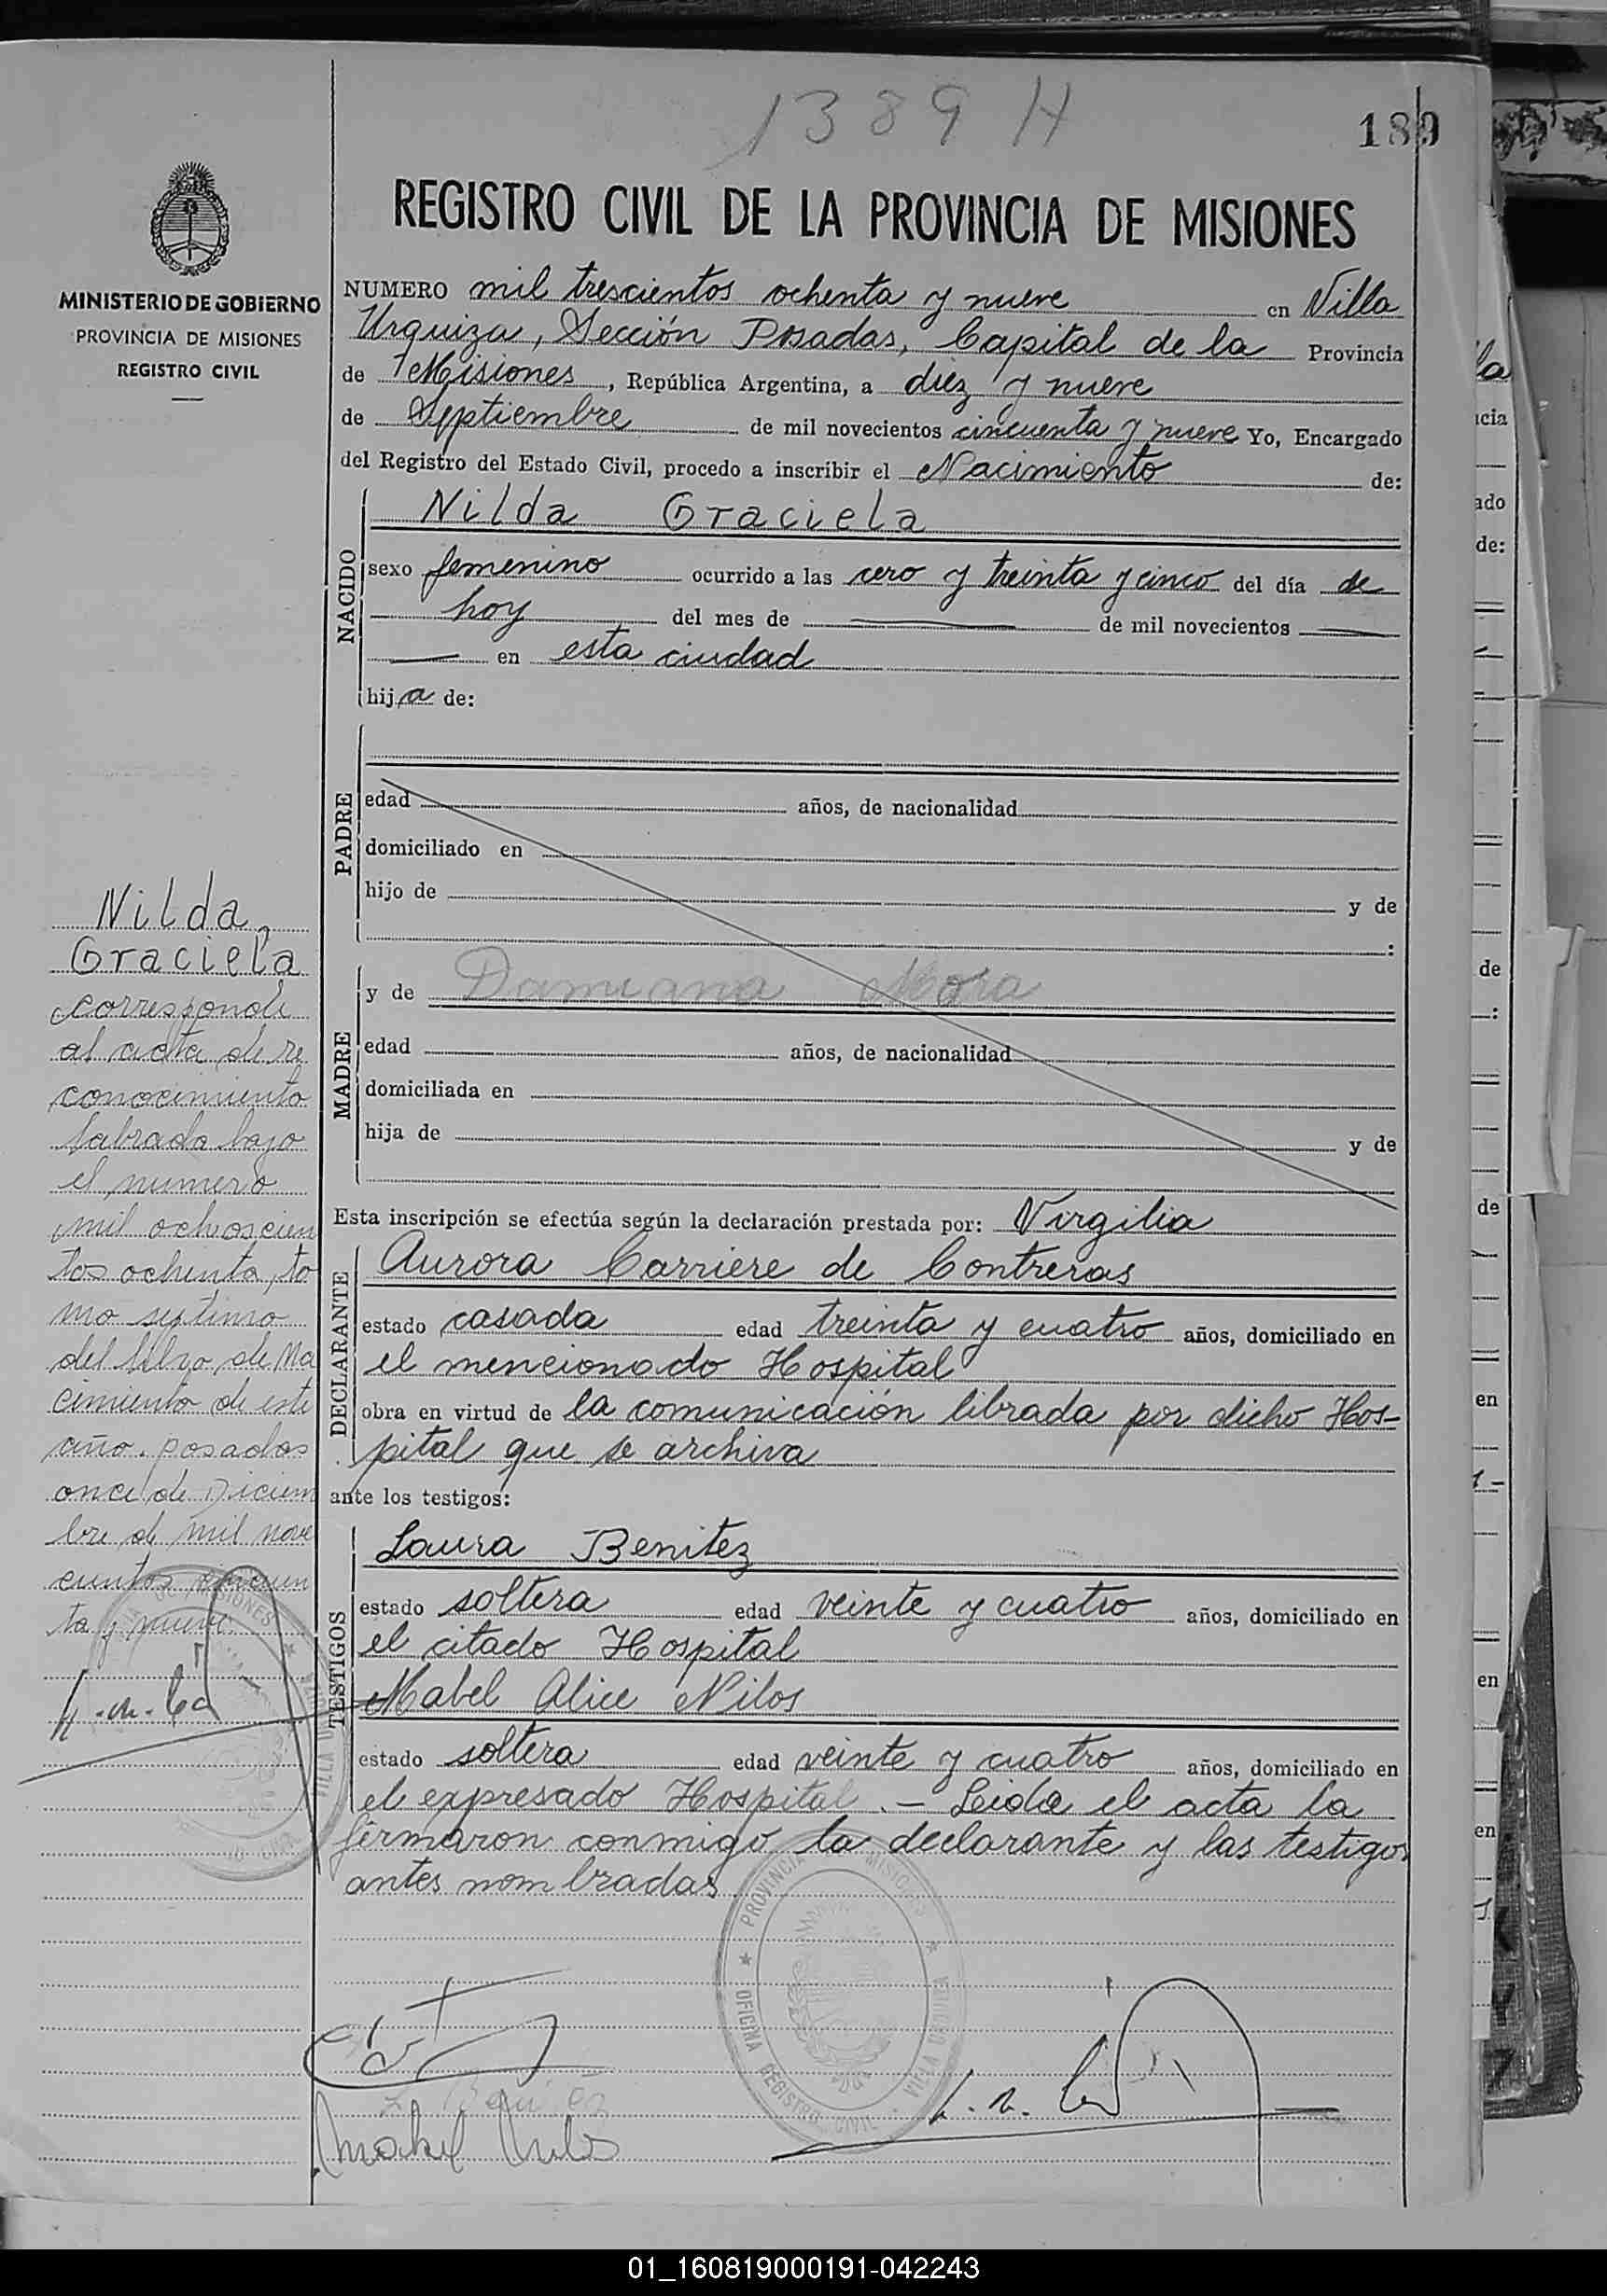 1389 H
189
REGISTRO CIVIL DE LA PROVINCIA DE MISIONES
MINISTERIO DE GOBIERNO
PROVINCIA DE MISIONES
REGISTRO CIVIL
NUMERO mil trescientos ochenta y nueve en Villa
Urquiza, Sección Posadas, Capital de la Provincia
de Misiones, República Argentina, a diez y nueve
de Septiembre de mil novecientos cincuenta y nueve Yo, Encargado
del Registro del Estado Civil, procedo a inscribir el Nacimiento de:
NACIDO
Nilda Graciela
sexo femenino ocurrido a las cero y treinta y cinco del día de
hoy del mes de de mil novecientos
en esta ciudad
hija de:
PADRE
edad años, de nacionalidad
domiciliado en
hijo de y de
:
MADRE
y de Damiana Mora
edad años, de nacionalidad
domiciliada en
hija de y de
Esta inscripción se efectúa según la declaración prestada por: Virgilia
DECLARANTE
Aurora Carriere de Contreras
estado casada edad treinta y cuatro años, domiciliado en
el mencionado Hospital
obra en virtud de la comunicación librada por dicho Hos-
pital que se archiva
ante los testigos:
TESTIGOS
Laura Benitez
estado soltera edad veinte y cuatro años, domiciliado en
el citado Hospital
Mabel Alice Nilos
estado soltera edad veinte y cuatro años, domiciliado en
el expresado Hospital .- Leida el acta la
firmaron conmigo la declarante y las testigos
antes nombradas
Nilda
Graciela
corresponde
al acta de re
conocimiento
labrada bajo
el numero
mil ochoscien
tos ochenta, to
mo septimo
del libro de Na
cimiento de este
año. posadas
once de Diciem
bre de mil nove
cientos cincuen
ta y nueve
PROVINCIA DE MISIONES
OFICINA REGISTRO CIVIL
VILLA URQUIZA
L. Benitez
Mabel Nilos
01_160819000191-042243